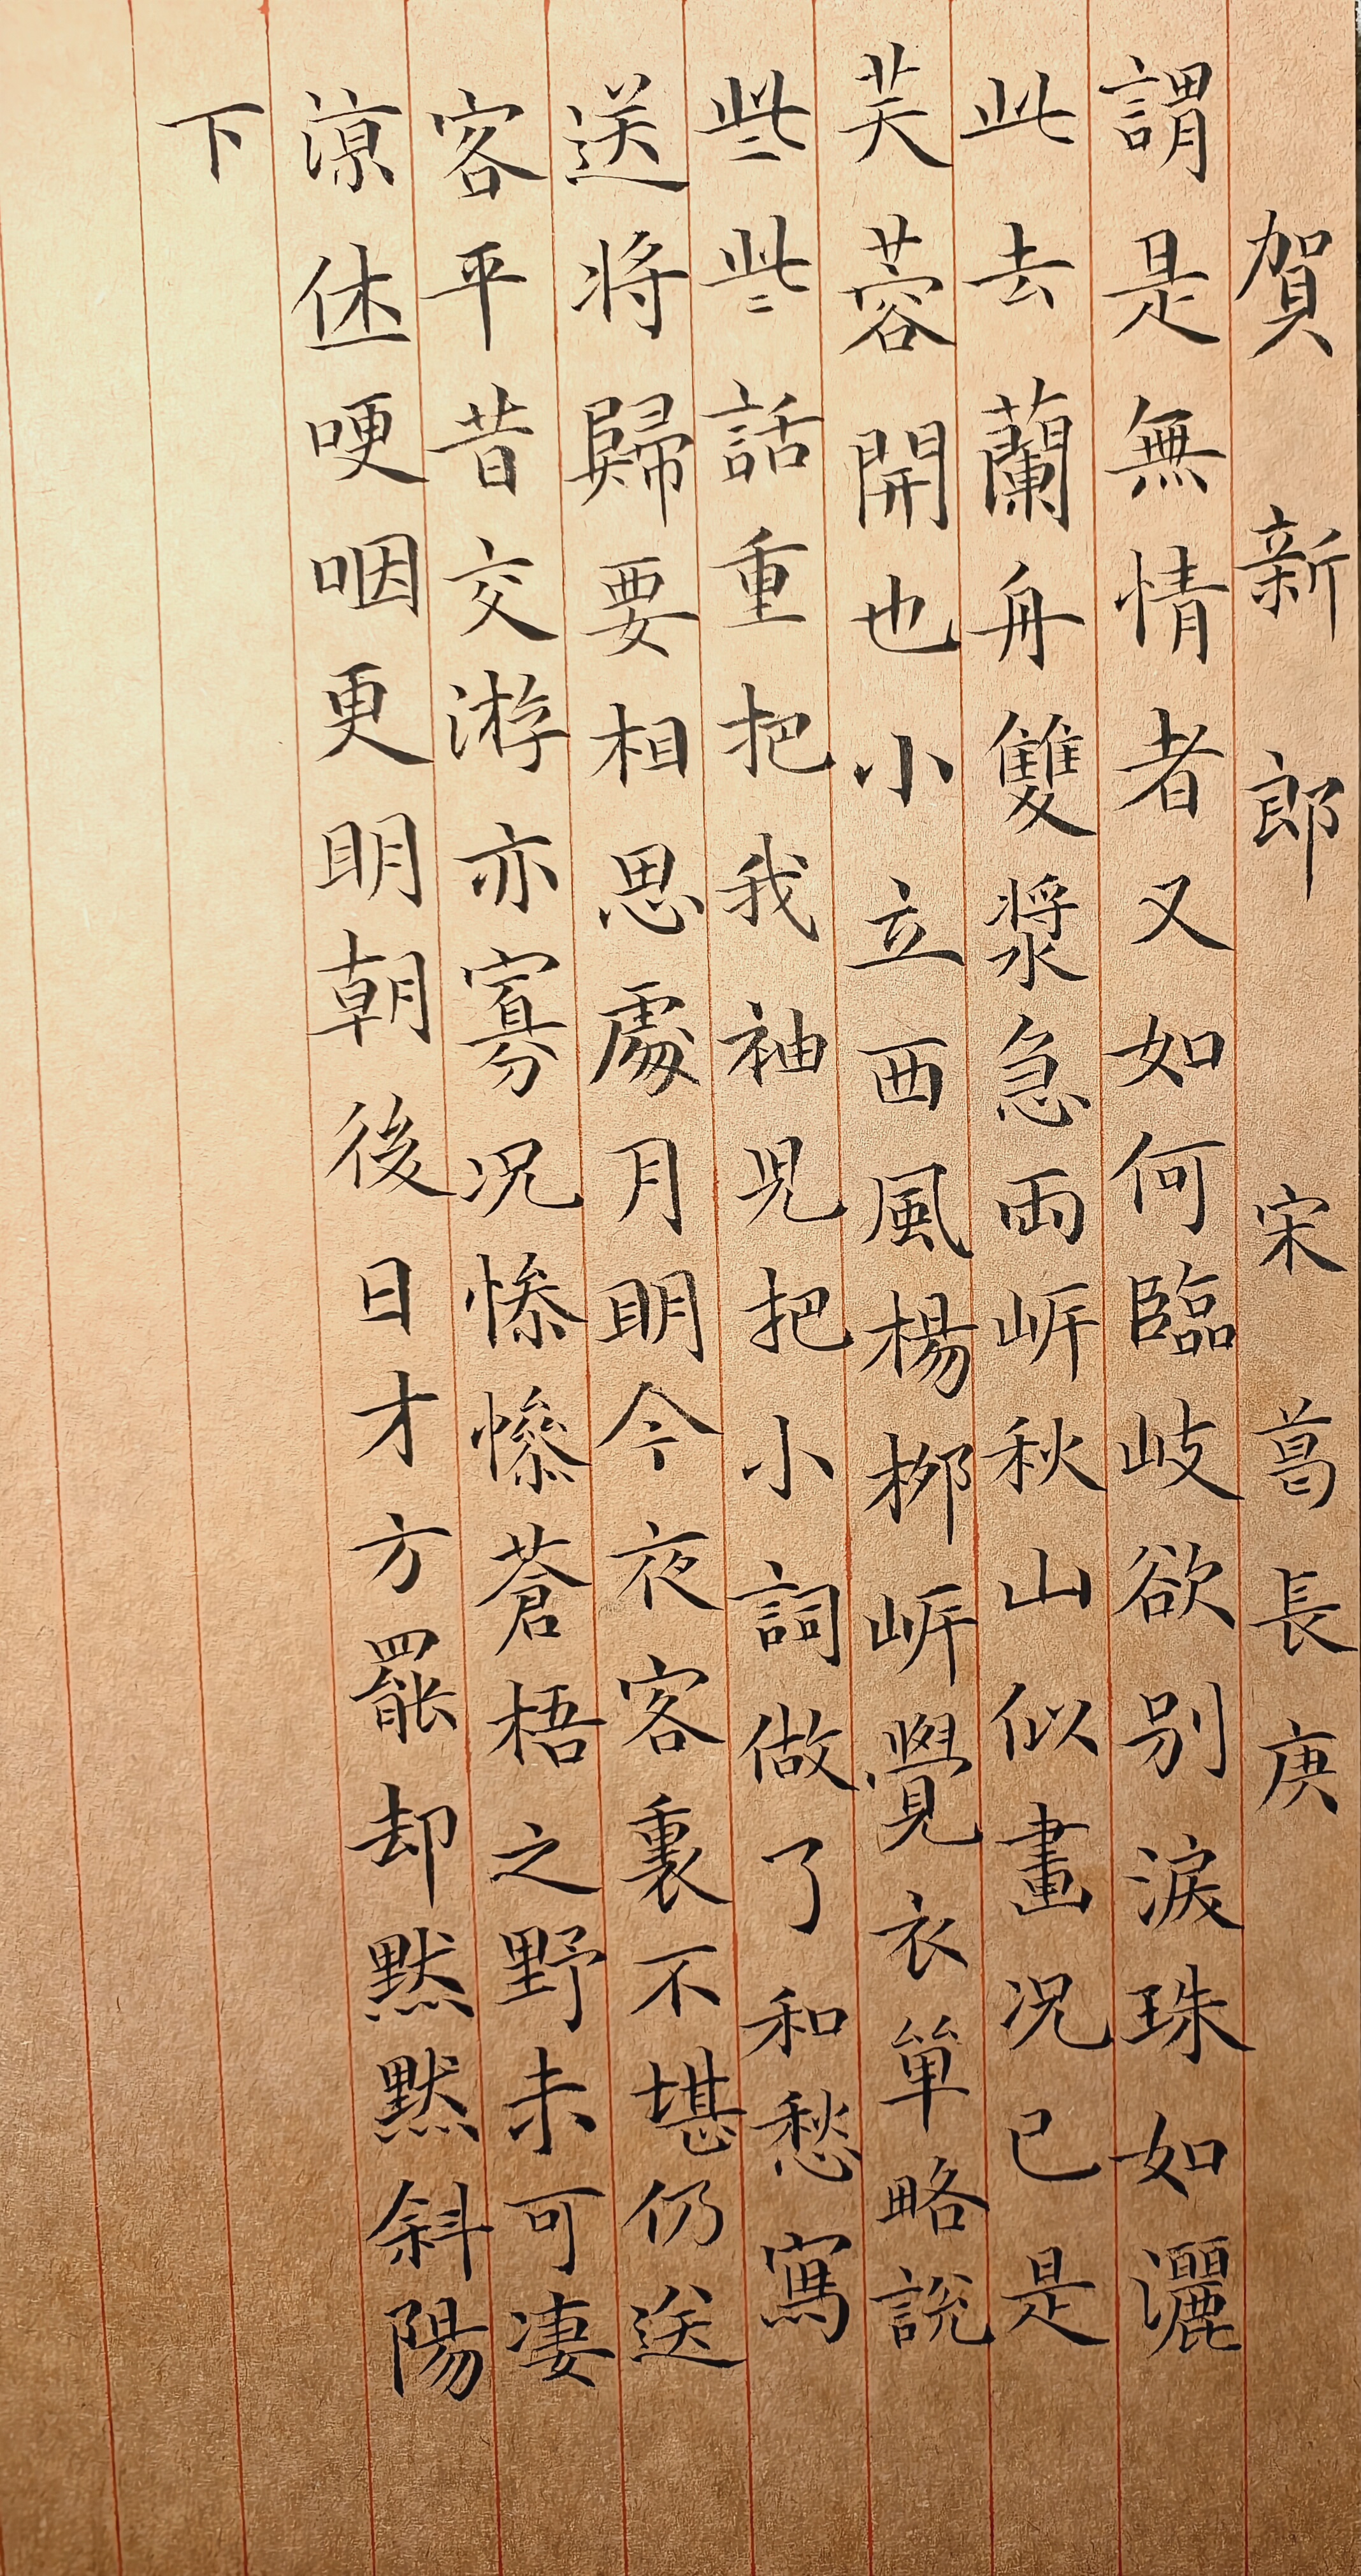 賀新郎 宋 葛長庚
謂是無情者又如何臨岐欲別淚珠如灑
此去蘭舟雙槳急兩岍秋山似畫況已是
芙蓉開也小立西風楊柳岍覺衣單略說
些些話重把我袖兒把小詞做了和愁寫
送將歸要相思處月明今夜客裏不堪仍送
客平昔交游亦寡況慘慘蒼梧之野未可凄
涼休哽咽更明朝後日才方罷却默默斜陽
下